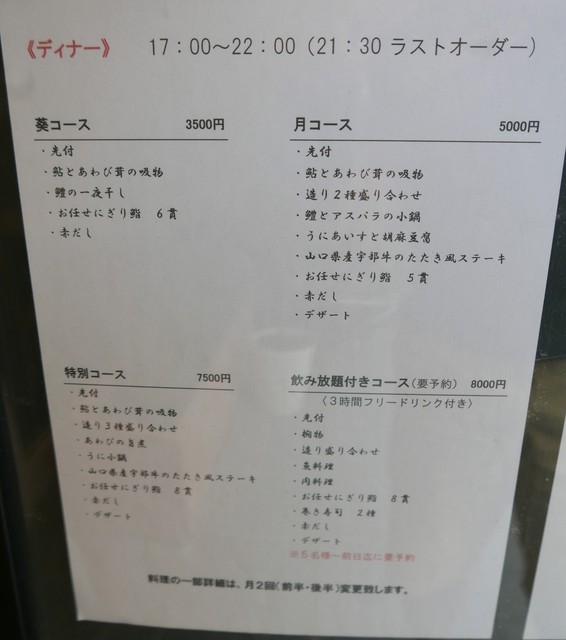 《ディナー》 17：00～22：00（21：30 ラストオーダー）
葵コース 3500円
・先付
・鮎とあわび茸の吸物
・鱧の一夜干し
・お任せにぎり鮨 6貫
・赤だし
月コース 5000円
・先付
・鮎とあわび茸の吸物
・造り2種盛り合わせ
・鱧とアスパラの小鍋
・うにあいすと胡麻豆腐
・山口県産宇部牛のたたき風ステーキ
・お任せにぎり鮨 5貫
・赤だし
・デザート
特別コース 7500円
・先付
・鮎とあわび茸の吸物
・造り3種盛り合わせ
・あわびの旨煮
・うに小鍋
・山口県産宇部牛のたたき風ステーキ
・お任せにぎり鮨 8貫
・赤だし
・デザート
飲み放題付きコース（要予約） 8000円
〈3時間フリードリンク付き〉
・先付
・椀物
・造り盛り合わせ
・魚料理
・肉料理
・お任せにぎり鮨 8貫
・巻き寿司 2種
・赤だし
・デザート
※5名様～前日迄に要予約
料理の一部詳細は、月2回（前半・後半）変更致します。